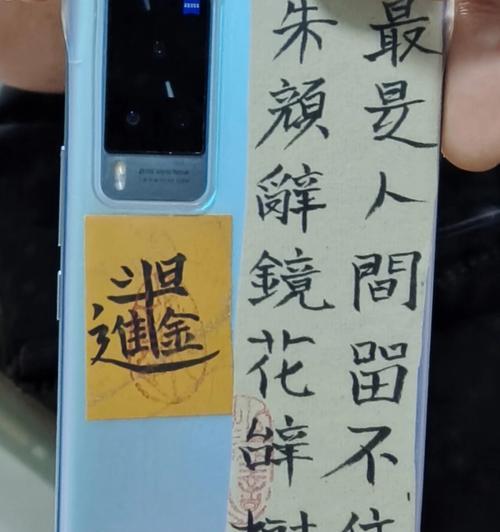 最是人間畱不
朱顏辭鏡花辝
日進斗金